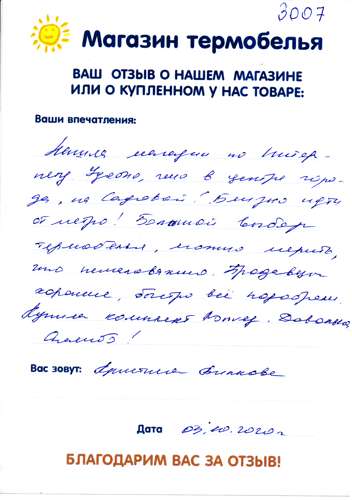 3007
Магазин термобелья
ВАШ ОТЗЫВ О НАШЕМ МАГАЗИНЕ
ИЛИ О КУПЛЕННОМ У НАС ТОВАРЕ:
Ваши впечатления:
Нашла магазин по Интер-
нету Удобно, что в центре горо-
да, на Садовой! Близко идти
от метро! Большой выбор
термобелья, можно мерить,
что немаловажно. Продавцы
хорошие, быстро всё подобрали.
Купила комплект . Довольна,
Спасибо!
Вас зовут: Кристина
Дата 03.10.2020г
БЛАГОДАРИМ ВАС ЗА ОТЗЫВ!